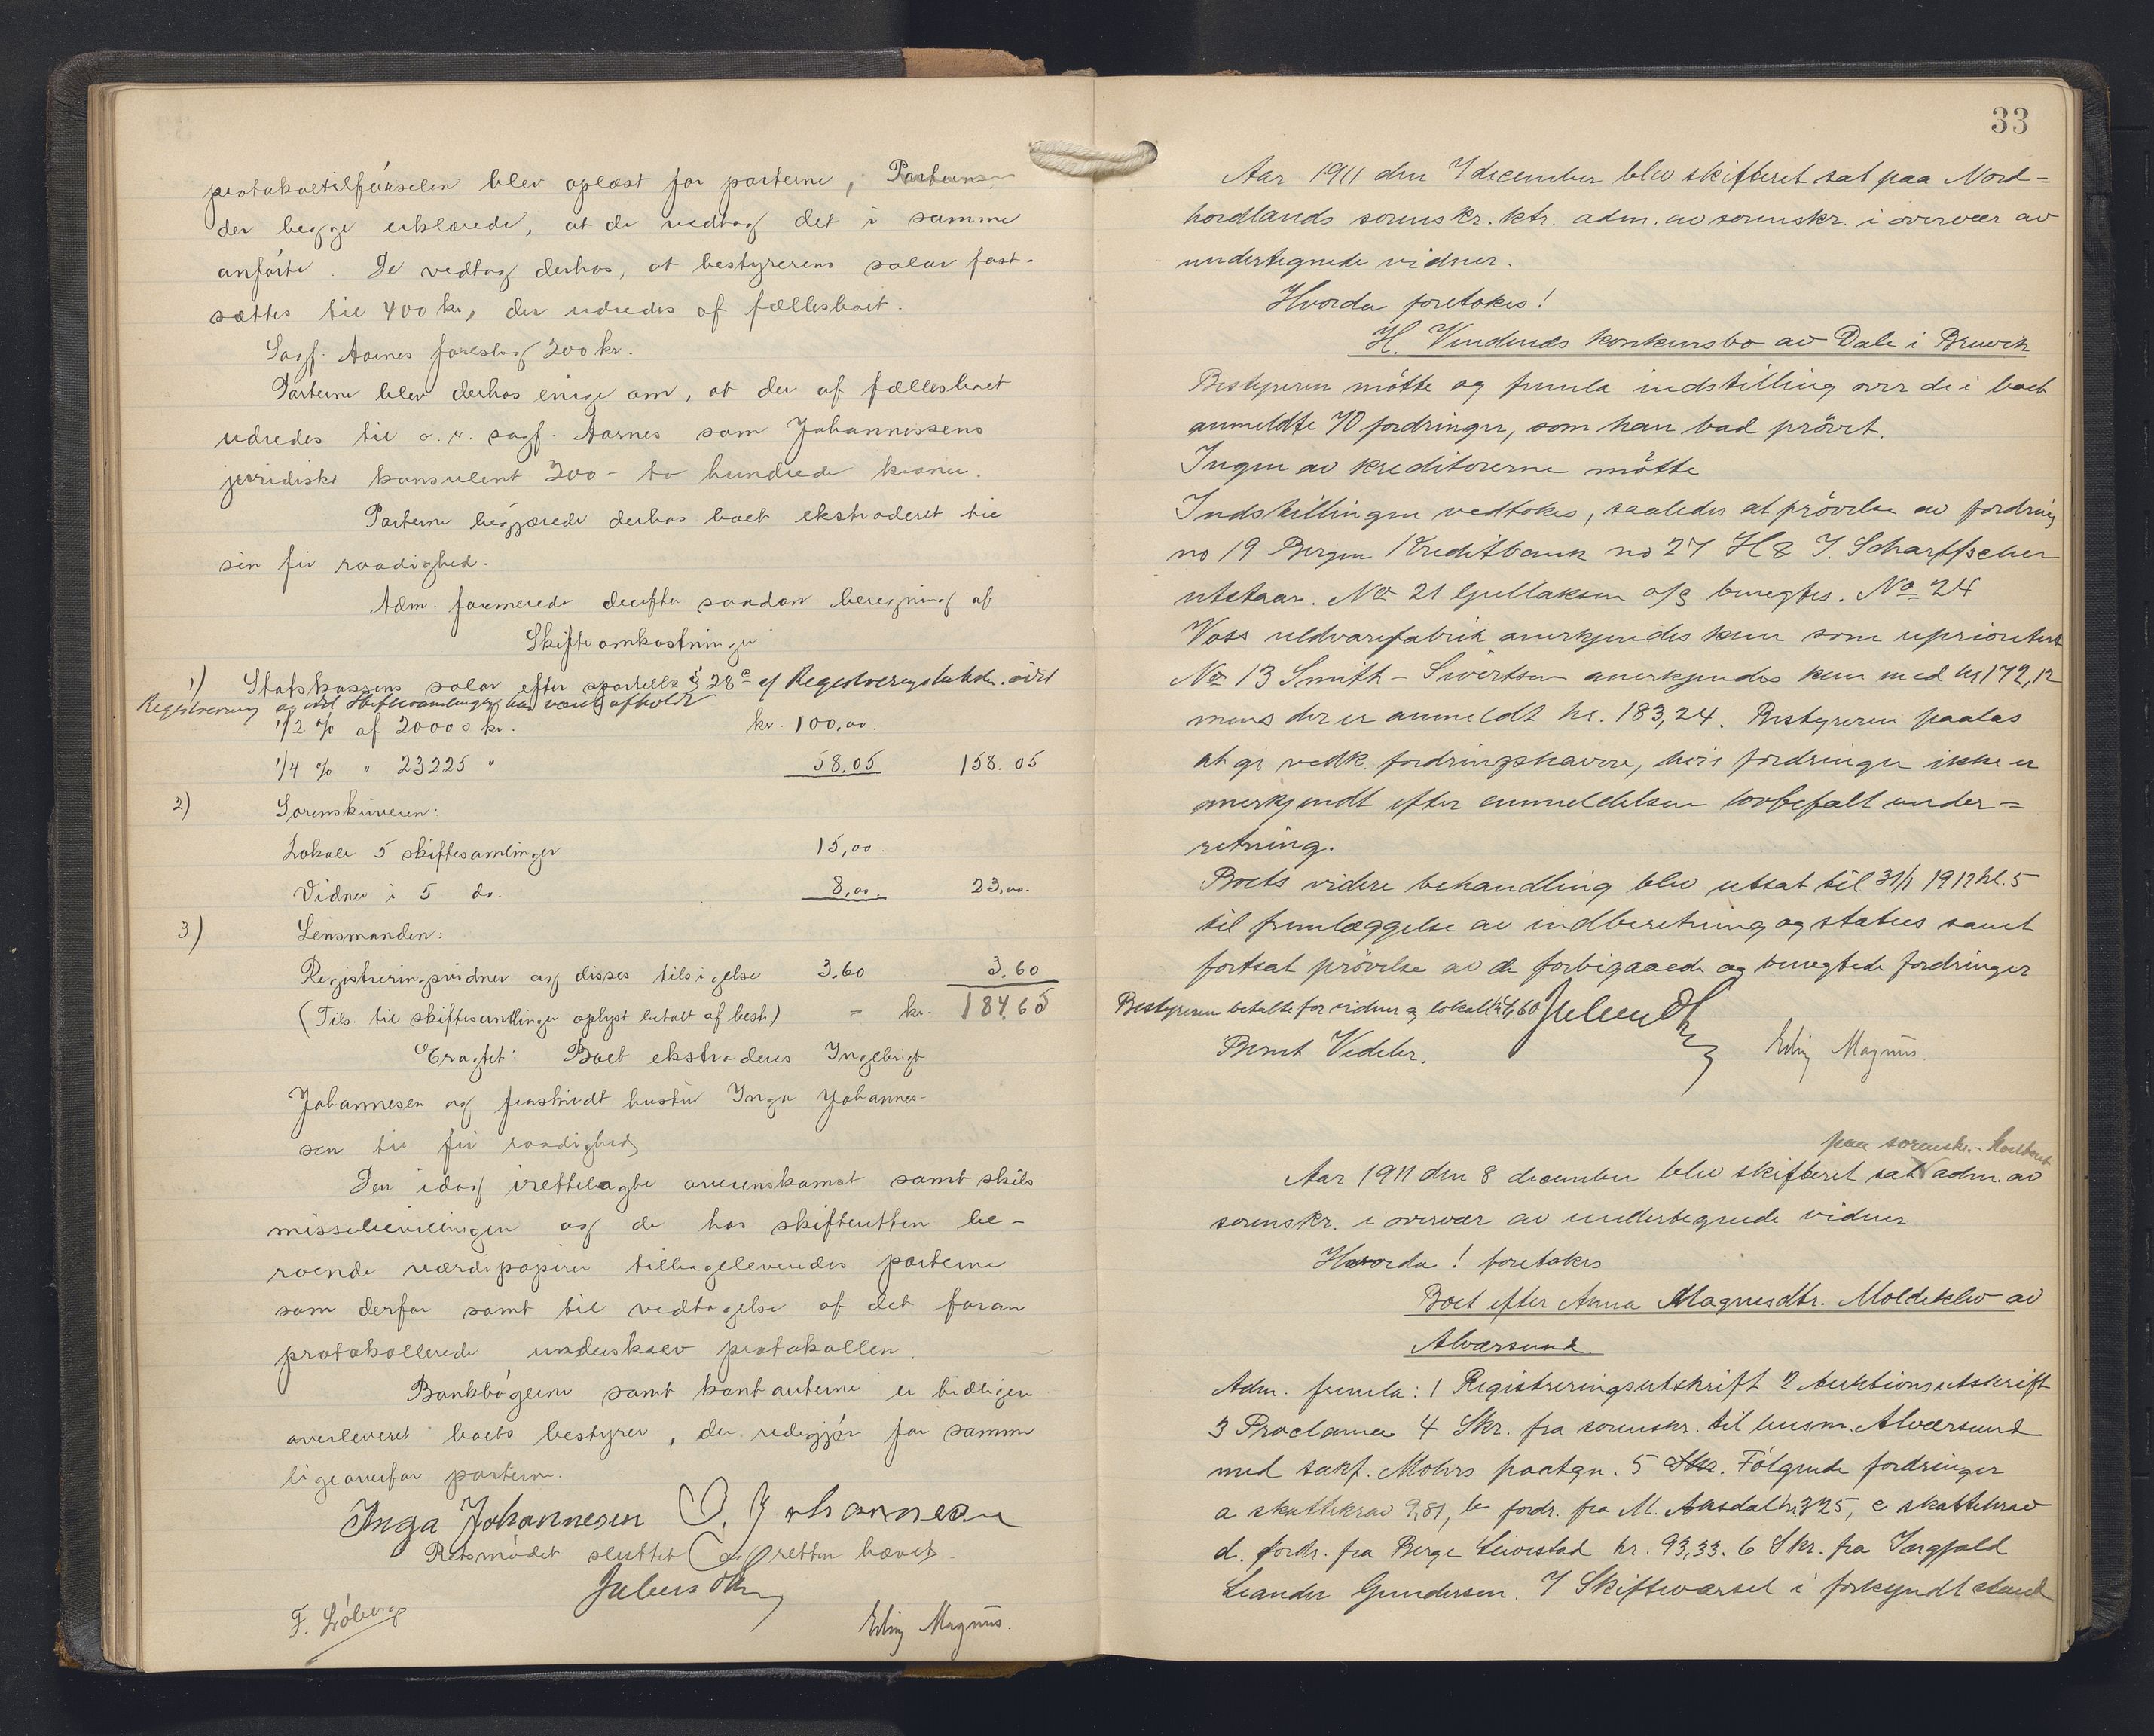 protokoltilførselen blev oplæst for parterne, Parterne
der begge erklærede, at de vedtog det i samme
anførte. De vedtog derhos, at bestyrerens salær fast-
sættes til 400 kr, der udredes af fællesboet.
Sagf. Aarnes foreslog 200 kr.
Parterne blev derhos enige om, at der af fællesboet
udredes til o. r. sagf. Aarnes som Johannessens
juridiske konsulent 200 - to hundrede kroner.
Parterne begjærede derhos boet ekstraderet til
sin fri raadighed.
Adm. formerede derefter saadan beregning af
Skifteomkostninger
1) Statskassens salær efter sportellov § 28 c cf Registreringslikvidn. sidst
Registrering og idet Skiftesamlinger har været afholdt
1/2 % af 20000 kr. kr. 100,00.
1/4 % " 23225 " 58.05 158.05
2) Sorenskriveren:
Lokale 5 skiftesamlinger 15,00.
Vidner i 5 do. 8,00. 23,00.
3) Lensmanden:
Registreringsvidner og disses tilsigelse 3.60 3.60
(Tils. til skiftesamlinger oplyst betalt af best.) - kr. 184,65
Eragtet: Boet ekstraderes Ingebrigt
Johannesen og fraskildt hustru Inga Johannes-
sen til fri raadighed
Den idag irettelagte overenskomst samt skils
missebevillingen og de hos skifteretten be-
roende værdipapirer tilbageleveredes parterne
som derfor samt til vedtagelse af det foran
protokollerede underskrev protokollen.
Bankbøgerne samt kontanterne er tidligere
overleveret boets bestyrer, der redegjør for samme
ligeoverfor parterne.
Inga Johannesen I. Johannesen
Retsmødet sluttet og retten hævet.
F. Løberg Erling Magnus.
33
Aar 1911 den 7 december blev skifteret sat paa Nord=
hordlands sorenskr. ktr. adm. av sorenskr. i overvær av
undertegnede vidner.
Hvorda foretokes!
H. Vindenes konkursbo av Dale i Bruvik
Bestyreren møtte og fremla indstilling over de i boet
anmeldte 70 fordringer, som han bad prøvet.
Ingen av kreditorerne møtte
Indstillingen vedtokes, saaledes at prøvelse av fordring
no 19 Bergen Kreditbank no 27 H & J. Scharffscher
utstaar. No 21 Gullaksen a/s benegtes. No 24
Voss uldvarefabrik anerkjendes kun som uprioritert
No 13 Smith-Sivertsen anerkjendes kun med kr 172,12
mens der er anmeldt kr. 183,24. Bestyreren paalas
at gi vedk. fordringshavere, hvis fordringer ikke er
anerkjendt efter anmeldelsen lovbefalt under=
retning.
Boets videre behandling blev utsat til 31/1 1912 kl. 5
til fremlæggelse av indberetning og status samt
fortsat prøvelse av de forbigaaede og benegtede fordringer
Bestyreren betalte for vidner og lokale kr 4,60
Bernt Videler. Erling Magnus.
paa sorenskr.-kontoret
Aar 1911 den 8 december blev skifteret sat adm. av
sorenskr. i overvær av undertegnede vidner
Hvorda! foretokes
Boet efter Anna Magnusdtr. Moldeklev av
Alværsund
Adm. fremla: 1 Registreringsutskrift 2 Auktionsutskrift
3 Proclama 4 Skr. fra sorenskr. til lensm. Alværsund
med sakf. Mohrs paategn. 5 Skr. Følgende fordringer
a skattekrav 9,81, b fordr. fra M. Aksdal kr. 325, c skattekrav
d. fordr. fra Berge Leivestad kr. 93,33. 6 Skr. fra Ingvald
Leander Gundersen. 7 Skiftevarsel i forkyndt stand